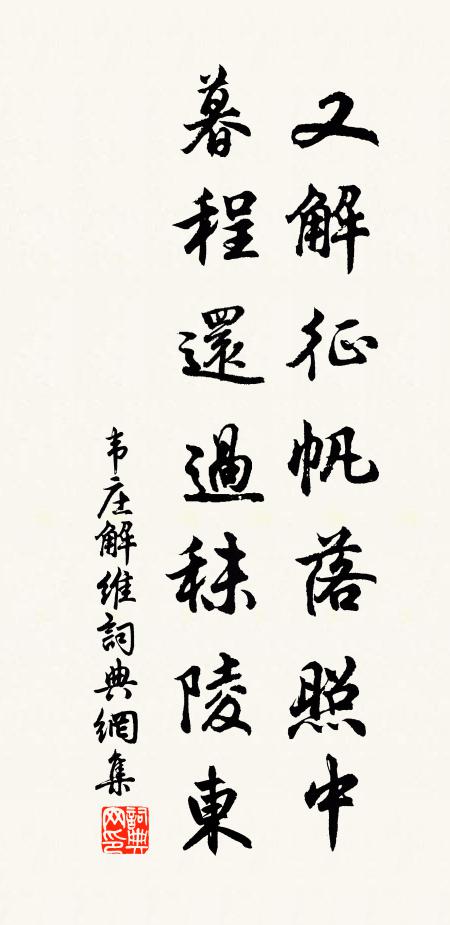 又解征帆落照中
暮程還過秣陵東
韦庄解维詞典網集
詞典网印